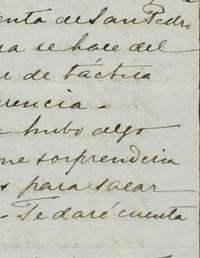 enta de San Pedro
a se hace del
r de táctica
erencia.
hubo algo
ue sorprendiera
s para sacar
- Te daré cuenta